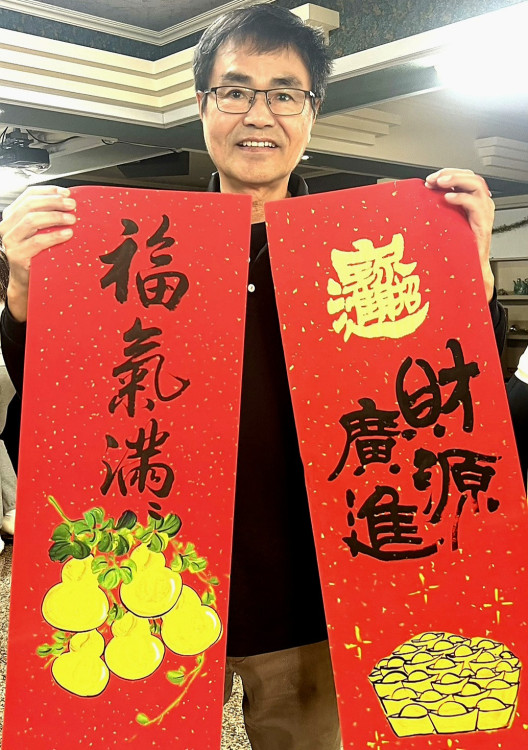 福氣滿〻
招財進寶
財源
廣進